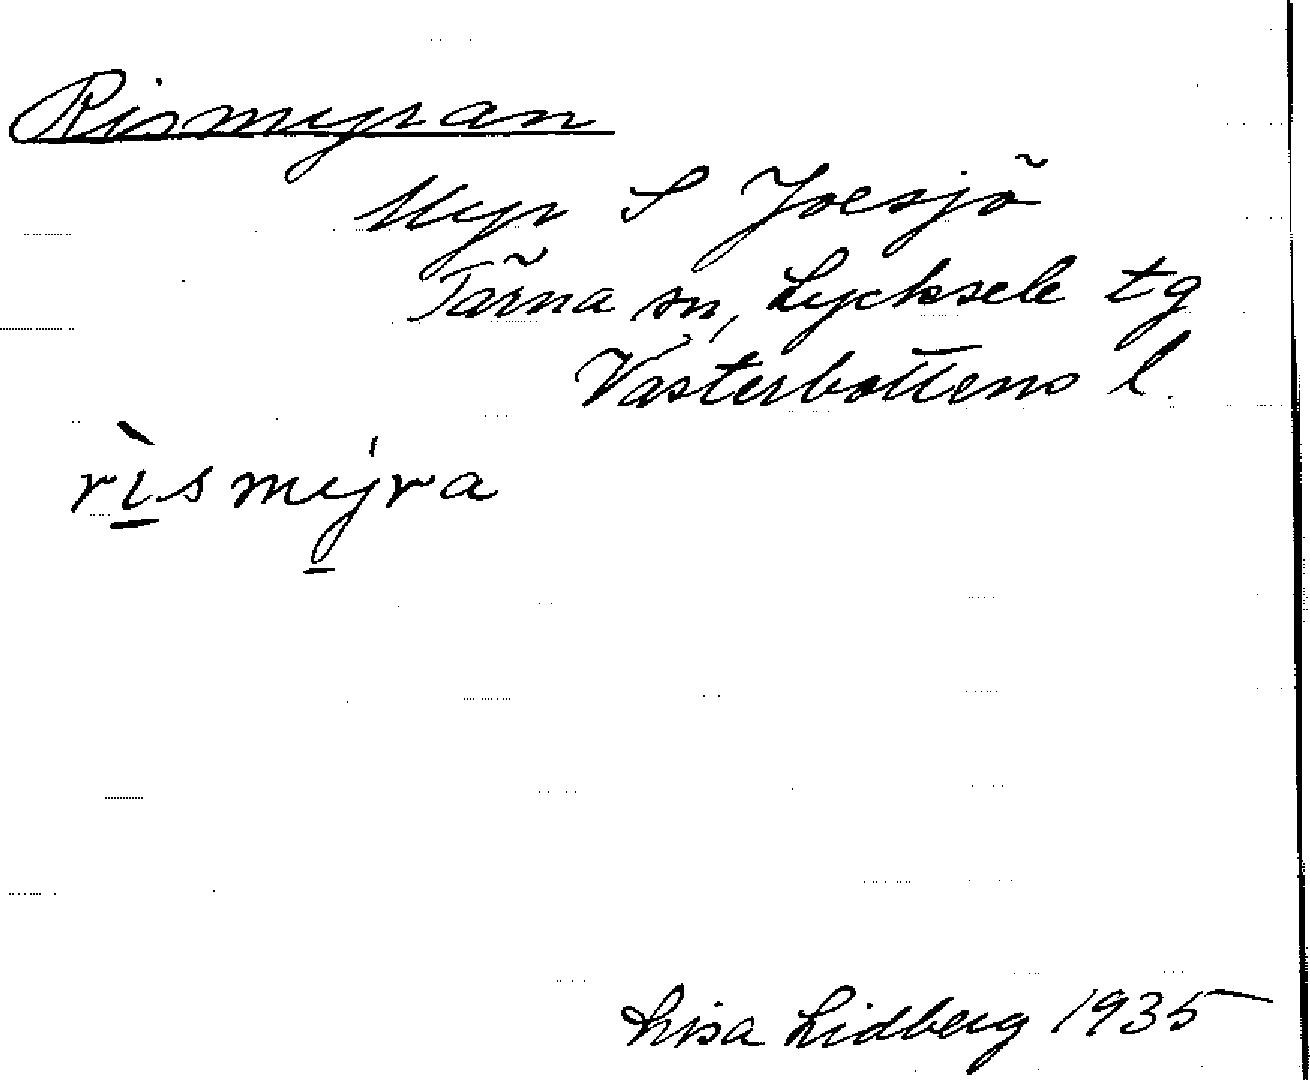 Rismyran
Myr S Joesjö
Tärna sn, Lycksele tg
Västerbottens l.
rìsmýra
Lisa Lidberg 1935